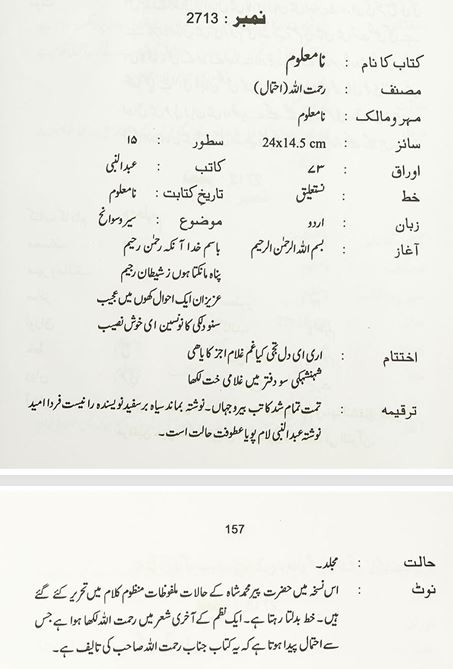 نمبر : 2713
کتاب کا نام : نامعلوم
مصنف : رحمت اللہ (احتمال)
مہر ومالک : نامعلوم
سائز : 24x14.5 cm سطور : ۱۵
اوراق : ۷۳ کاتب : عبدالنبی
خط : نستعلیق تاریخ کتابت : نامعلوم
زبان : اردو موضوع : سیر وسوانح
آغاز : بسم اللہ الرحمٰن الرحیم باسم خدا آنکہ رحمٰن رحیم
پناہ مانگتا ہوں ز شیطان رجیم
عزیزان ایک احوال کھوں میں عجیب
سنو دلکی کانو سیں ای خوش نصیب
اختتام : اری ای دل تجی کیا غم غلام اجز کا یاھی
شہنشہکی سو دفتر میں غلامی خت لکھا
ترقیمہ : تمت تمام شد کاتب بیرو جہاں۔ نوشتہ بماند سیاہ بر سفید نویسندہ را نیست فردا امید
نوشتہ عبدالنبی لام پویا عطوفت حالت است۔
157
حالت : مجلد۔
نوٹ : اس نسخہ میں حضرت پیر محمد شاہ کے حالات ملفوظات منظوم کلام میں تحریر کئے گئے
ہیں۔ خط بدلتا رہتا ہے۔ ایک نظم کے آخری شعر میں رحمت اللہ لکھا ہوا ہے جس
سے احتمال پیدا ہوتا ہے کہ یہ کتاب جناب رحمت اللہ صاحب کی تالیف ہے۔